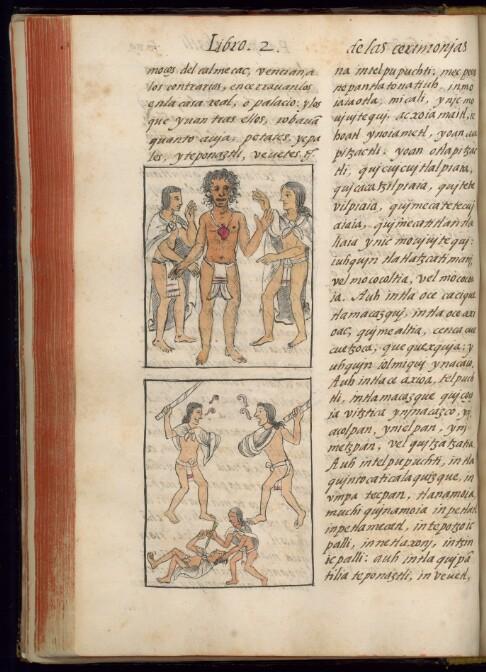 Libro. 2.
de las cerimonjas
moços del calmecac, vencian, a
los contrarios, encerravanlos
en la casa real, o palacio: y los
que yvan tras ellos, robavã
quanto avia, petates, ycpa
les, y teponaztli, vevetes. &.
na intelpupuchti: mec
nepantla tonatiuh, inmo
micali, ynic mo
vivitequi, acxoiamaitl,
hoatl ynoiametl, yoan
pitzactli: yoan otlapitzac
tli, quicuicuitlalpiaia,
quicacatzilpiaia, quitete
vilpiaia, quimecatetecuj
aiaia,
liaia ynic movivitequj:
iuhquin tlatlatzcatimanj,
vel mococoltia, vel mococo
ia. Auh intla oce cacique
tlamacazquj, intla oce axi
oac, quimealtia, cenca cue
cuetzoca, quequexquja: y
uhquin iolmiquj ynacaio.
Auh intla ce axioa, telpuch
tli, intlamacazque quiçoço
ia vitztica yninacazco, yn
acolpan, ynielpan, yn
metzpan, vel quitzatzatia.
Auh intelpupuchti, intla
quintocaticalaquizque, in
vmpa tecpan, tlanamoia,
muchi quinamoia inpetlatl
inpetlamecatl, intepotzoic
palli, innetlaxonj, intzin
icpalli: auh intla quipã
tilia teponaztli, in vevetl,